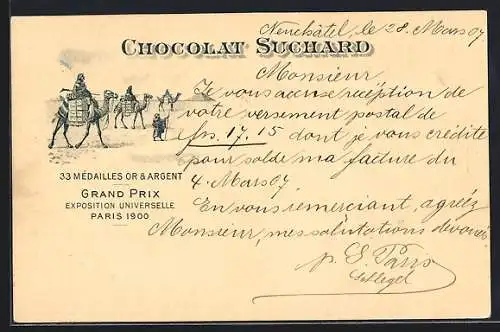 Neuchâtel, le 28. Mars 07
CHOCOLAT SUCHARD
Monsieur
Je vous accuse réception de
votre versement postal de
frs. 17.15 dont je vous crédite
pour solde ma facture du
4. Mars 07.
En vous remerciant, agréez
Monsieur, mes salutations dévouées
33 MÉDAILLES OR & ARGENT
GRAND PRIX
EXPOSITION UNIVERSELLE
PARIS 1900
p.